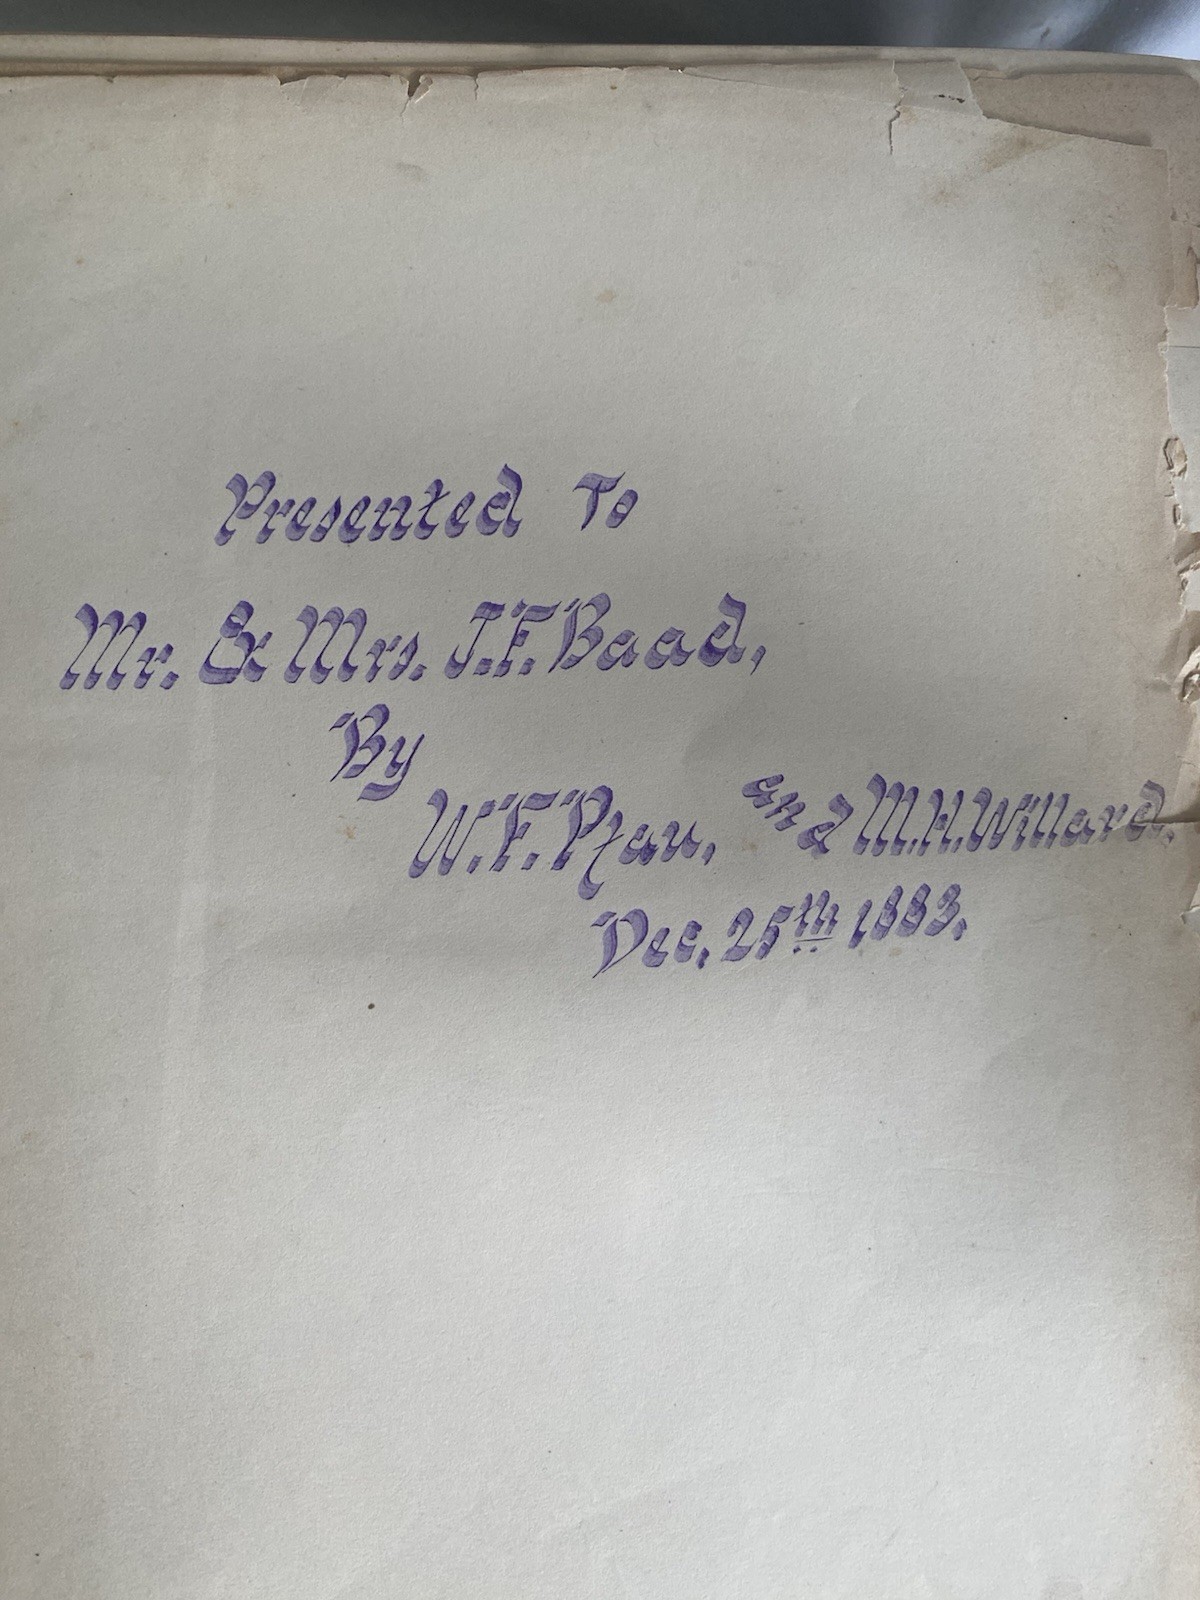 Presented To
Mr. & Mrs. J.F. Baad,
By
W.F. Pfau, and M.H. Willard.
Dec. 25th 1883.